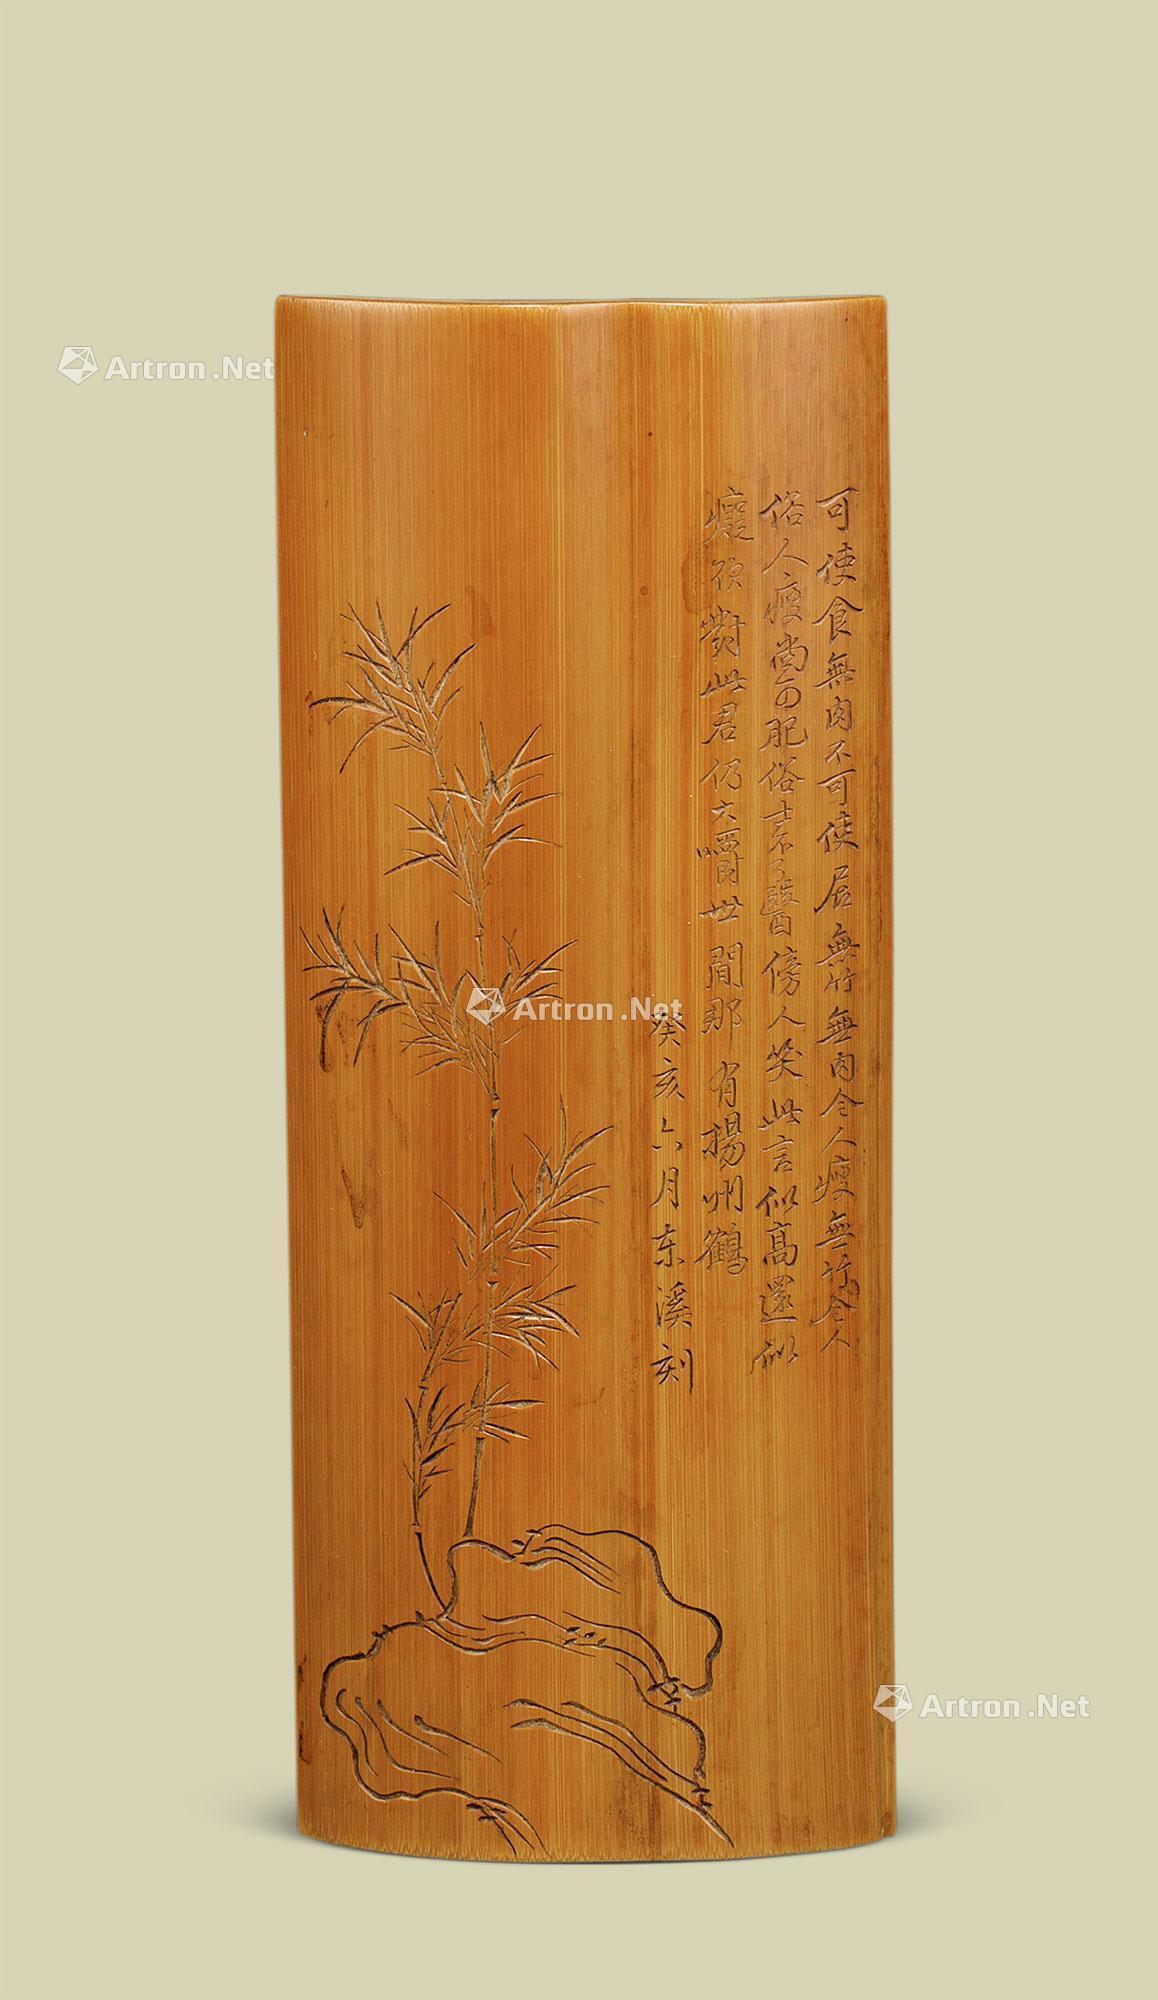 可使食無肉不可使居無竹無肉令人瘦無竹令人
俗人瘦尚可肥俗士不可醫傍人笑此言似高還似
癡欲對此君仍大嚼世間那有揚州鶴
癸亥六月东溪刻
Artron.Net
Artron.Net
Artron.Net